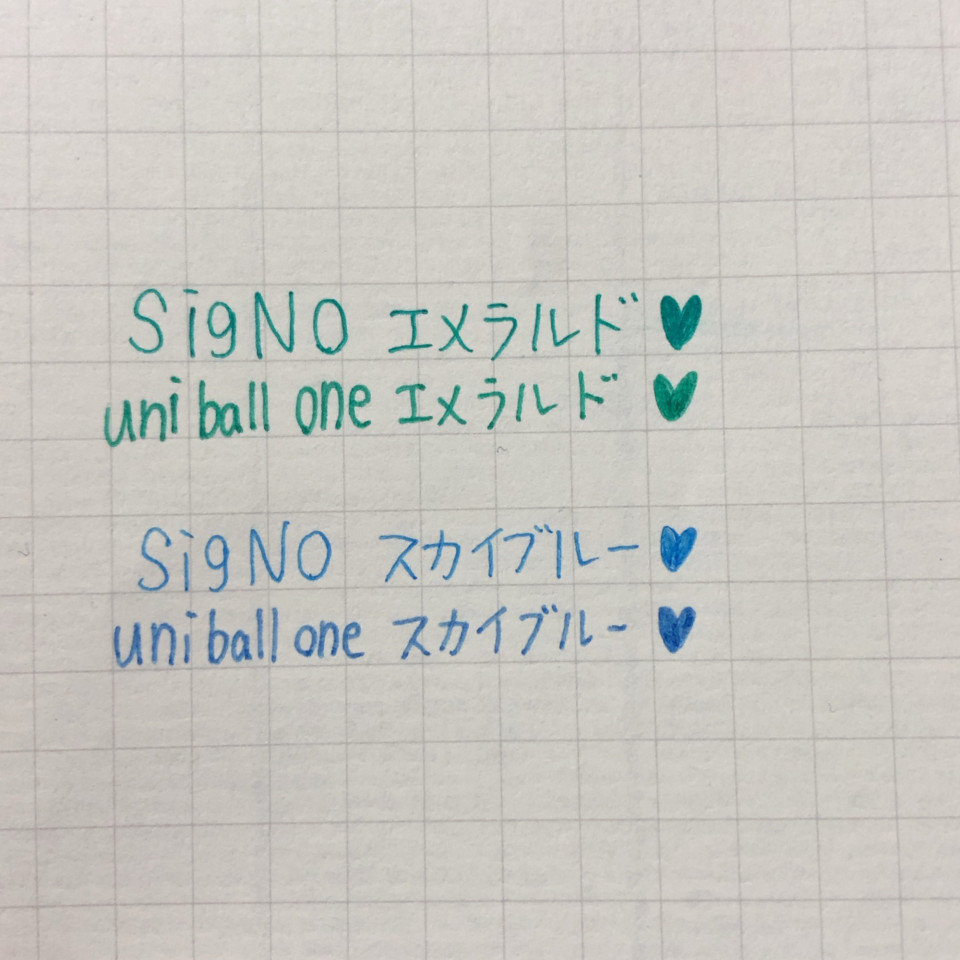 SigNO エメラルド ♥
uni ball one エメラルド ♥
SigNO スカイブルー ♥
uni ball one スカイブルー ♥